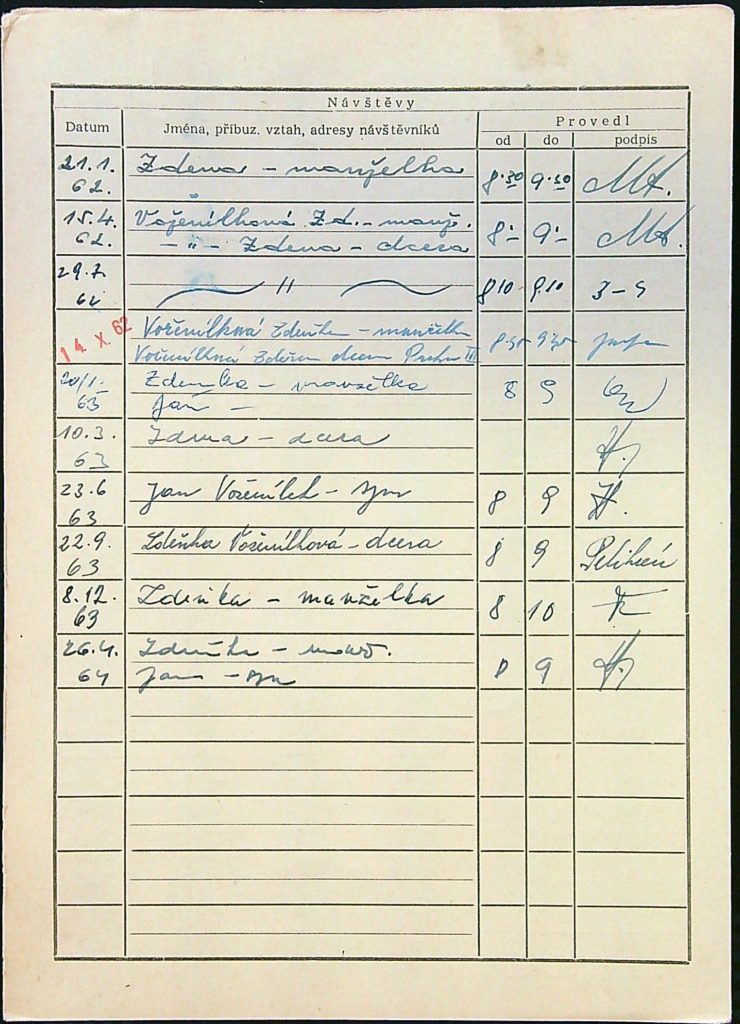 Návštěvy
Datum Jména, příbuz. vztah, adresy návštěvníků Provedl
od do podpis
21.1. Zdena - manželka 8.30 9.30
62.
15.4. Voženílková Zd. - manž. 8- 9-
62. - " - Zdena - dcera
29.7. " 8 10 9.10
62
14 X. 62 Voženílková Zdeňka - manželka
Voženílková Zdena dcera Praha III
20/1. Zdenka - manželka 8 9
63 Jan -
10.3. Zdena - dcera
63
23.6 Jan Voženílek - syn 8 9
63
22.9. Zdeňka Voženílková - dcera 8 9
63
8.12. Zdenka - manželka 8 10
63
26.4. Zdeňka - manž. 8 9
64 Jan - syn